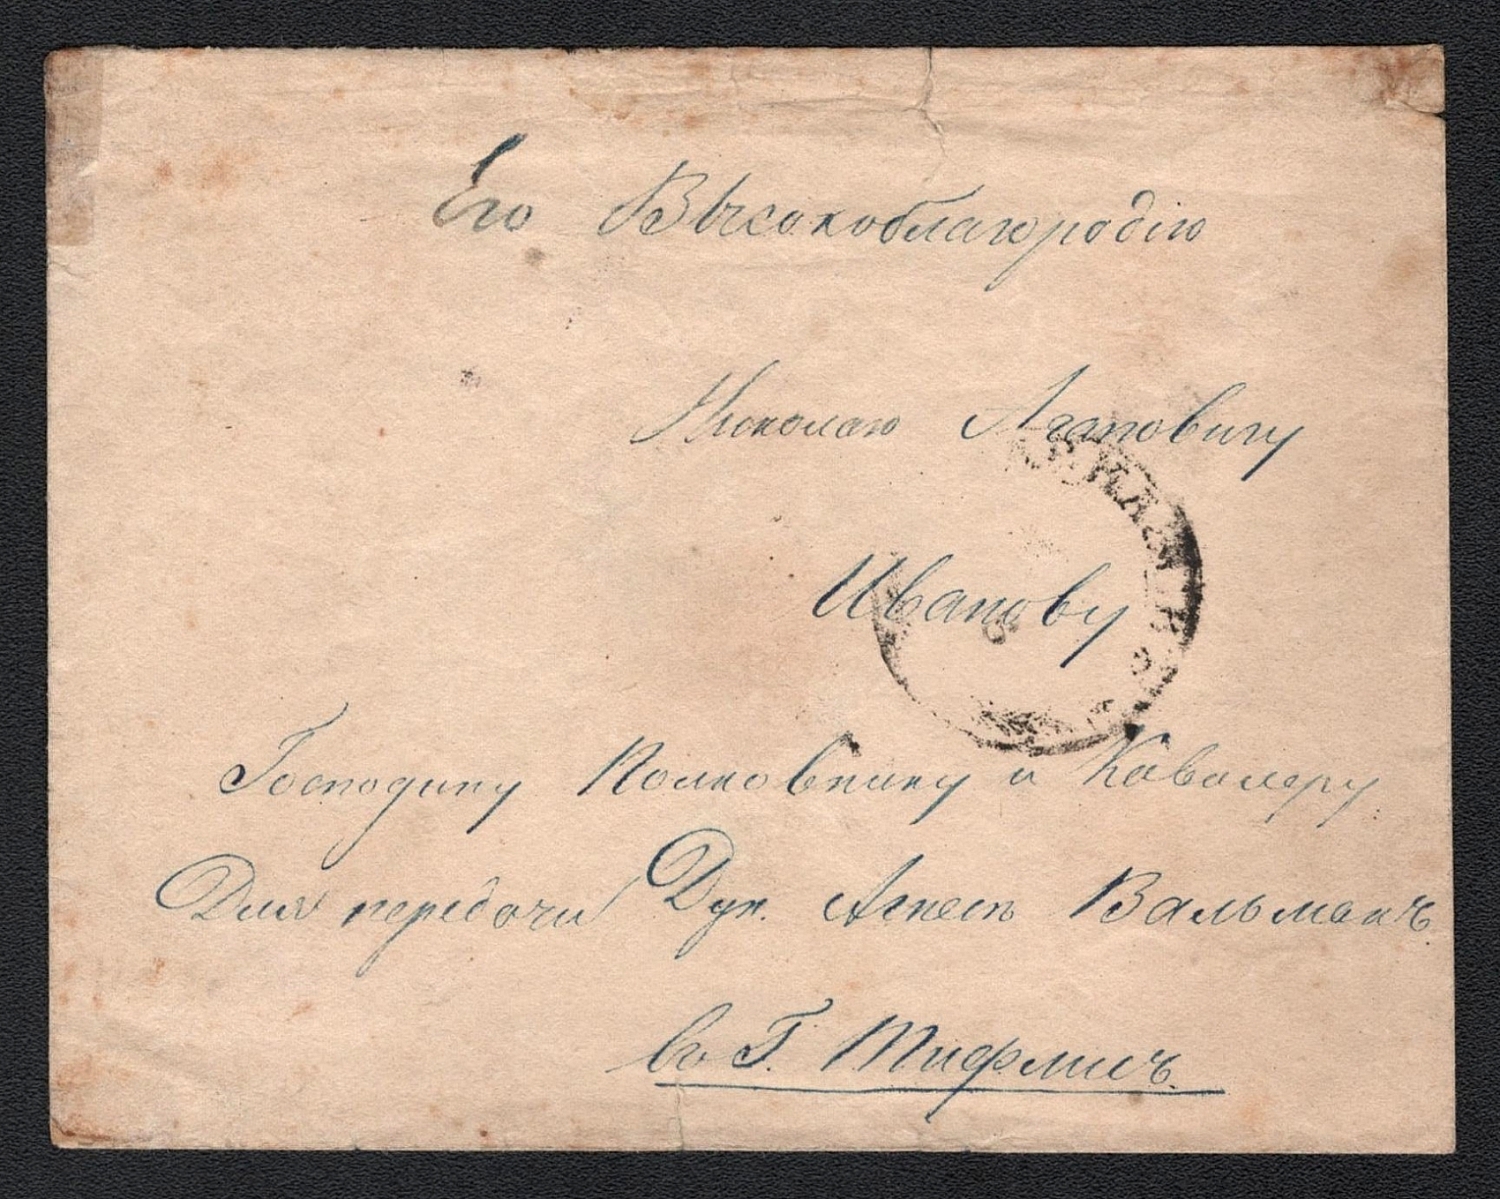 Его Высокоблагородію
Николаю Агаповичу
Иванову
Господину Полковнику и Кавалеру
Для передачи Дук. Агнесъ Вальманъ.
въ Г. Тифлисъ.